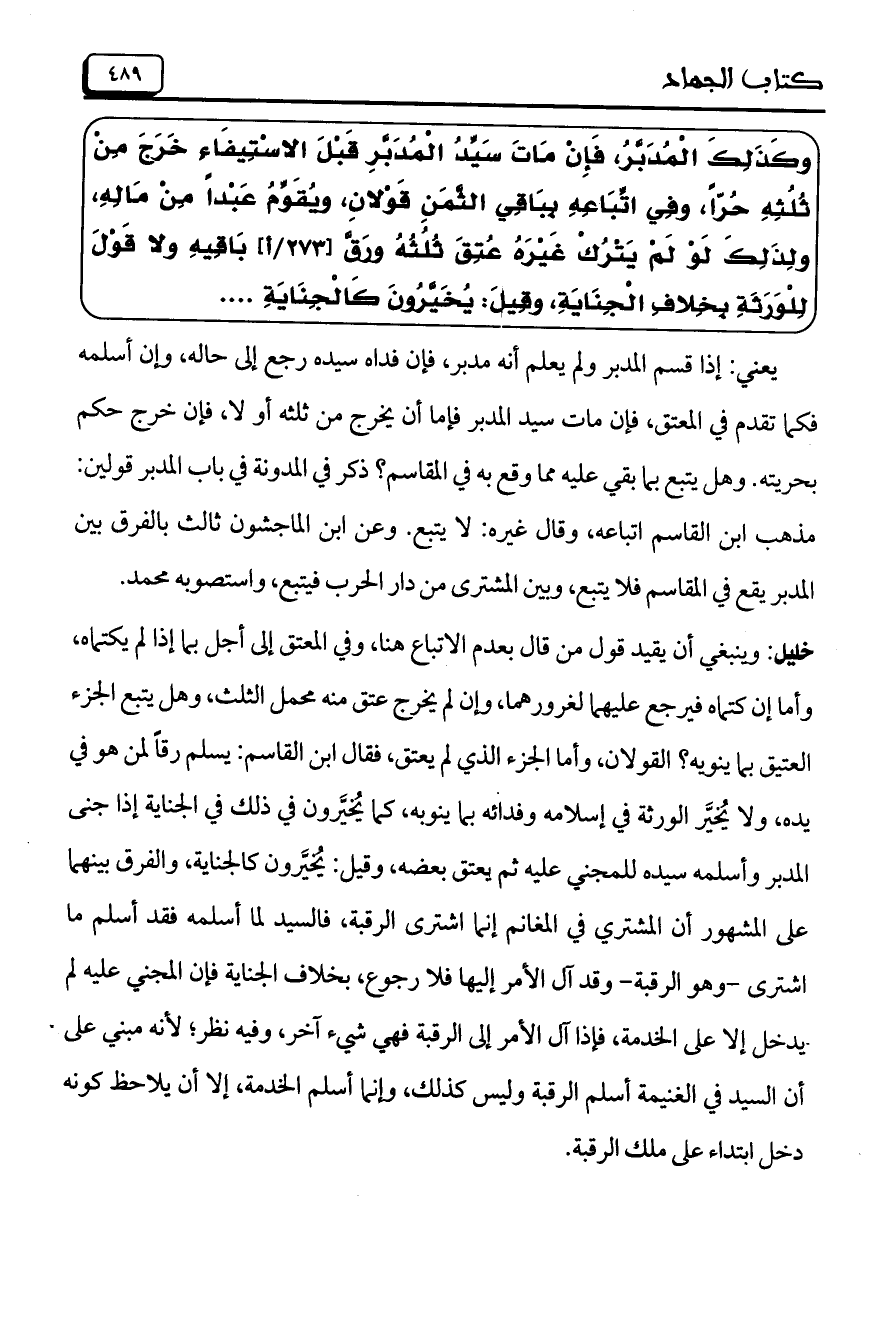 كتاب الجهاد
٤٨٩
وكَذَلِكَ الْمُدَبَّرُ، فَإِنْ مَاتَ سَيِّدُ الْمُدَبَّرِ قَبْلَ الاسْتِيفَاءِ خَرَجَ مِنْ
ثُلُثِهِ حُرّاً، وفِي اتِّبَاعِهِ بِبَاقِي الثَّمَنِ قَوْلانِ، ويُقَوَّمُ عَبْداً مِنْ مَالِهِ،
ولِذَلِكَ لَوْ لَمْ يَتْرُكْ غَيْرَهُ عَتِقَ ثُلُثُهُ ورَقَّ [٢٧٣/أ] بَاقِيهِ ولا قَوْلَ
لِلْوَرَثَةِ بِخِلافِ الْجِنَايَةِ، وقِيلَ: يُخَيَّرُونَ كَالْجِنَايَةِ ....
يعني: إذا قسم المدبر ولم يعلم أنه مدبر، فإن فداه سيده رجع إلى حاله، وإن أسلمه
فكما تقدم في المعتق، فإن مات سيد المدبر فإما أن يخرج من ثلثه أو لا، فإن خرج حكم
بحريته. وهل يتبع بما بقي عليه مما وقع به في المقاسم؟ ذكر في المدونة في باب المدبر قولين:
مذهب ابن القاسم اتباعه، وقال غيره: لا يتبع. وعن ابن الماجشون ثالث بالفرق بين
المدبر يقع في المقاسم فلا يتبع، وبين المشترى من دار الحرب فيتبع، واستصوبه محمد.
خليل: وينبغي أن يقيد قول من قال بعدم الاتباع هنا، وفي المعتق إلى أجل بما إذا لم يكتماه،
وأما إن كتماه فيرجع عليهما لغرورهما، وإن لم يخرج عتق منه محمل الثلث، وهل يتبع الجزء
العتيق بما ينوبه؟ القولان، وأما الجزء الذي لم يعتق، فقال ابن القاسم: يسلم رقاً لمن هو في
يده، ولا يُخيَّر الورثة في إسلامه وفدائه بما ينوبه، كما يُخيَّرون في ذلك في الجناية إذا جنى
المدبر وأسلمه سيده للمجني عليه ثم يعتق بعضه، وقيل: يُخيَّرون كالجناية، والفرق بينهما
على المشهور أن المشتري في المغانم إنما اشترى الرقبة، فالسيد لما أسلمه فقد أسلم ما
اشترى -وهو الرقبة- وقد آل الأمر إليها فلا رجوع، بخلاف الجناية فإن المجني عليه لم
يدخل إلا على الخدمة، فإذا آل الأمر إلى الرقبة فهي شيء آخر، وفيه نظر؛ لأنه مبني على
أن السيد في الغنيمة أسلم الرقبة وليس كذلك، وإنما أسلم الخدمة، إلا أن يلاحظ كونه
دخل ابتداء على ملك الرقبة.